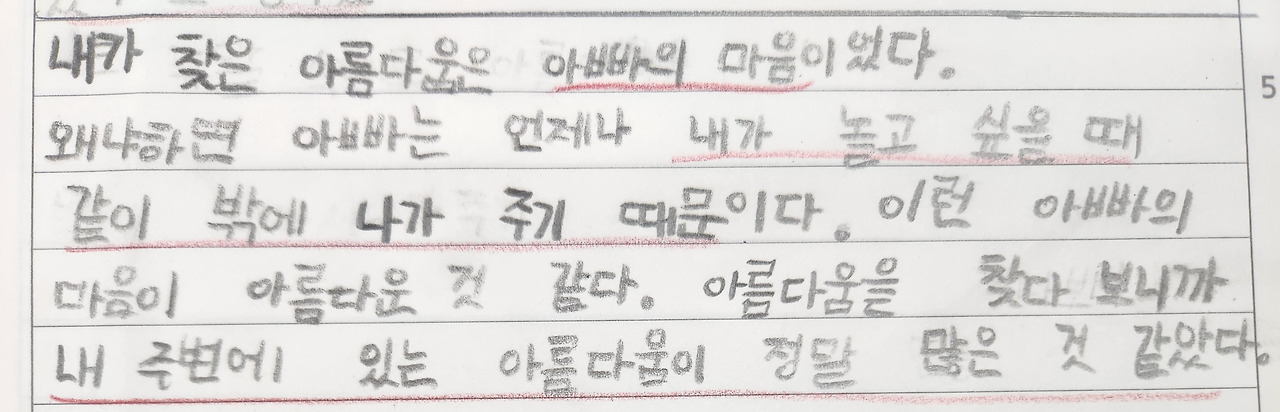 내가 찾은 아름다움은 아빠의 마음이었다.
왜냐하면 아빠는 언제나 내가 놀고 싶을 때
같이 밖에 나가 주기 때문이다. 이런 아빠의
마음이 아름다운 것 같다. 아름다움을 찾다 보니까
내 주변에 있는 아름다움이 정말 많은 것 같았다.
5